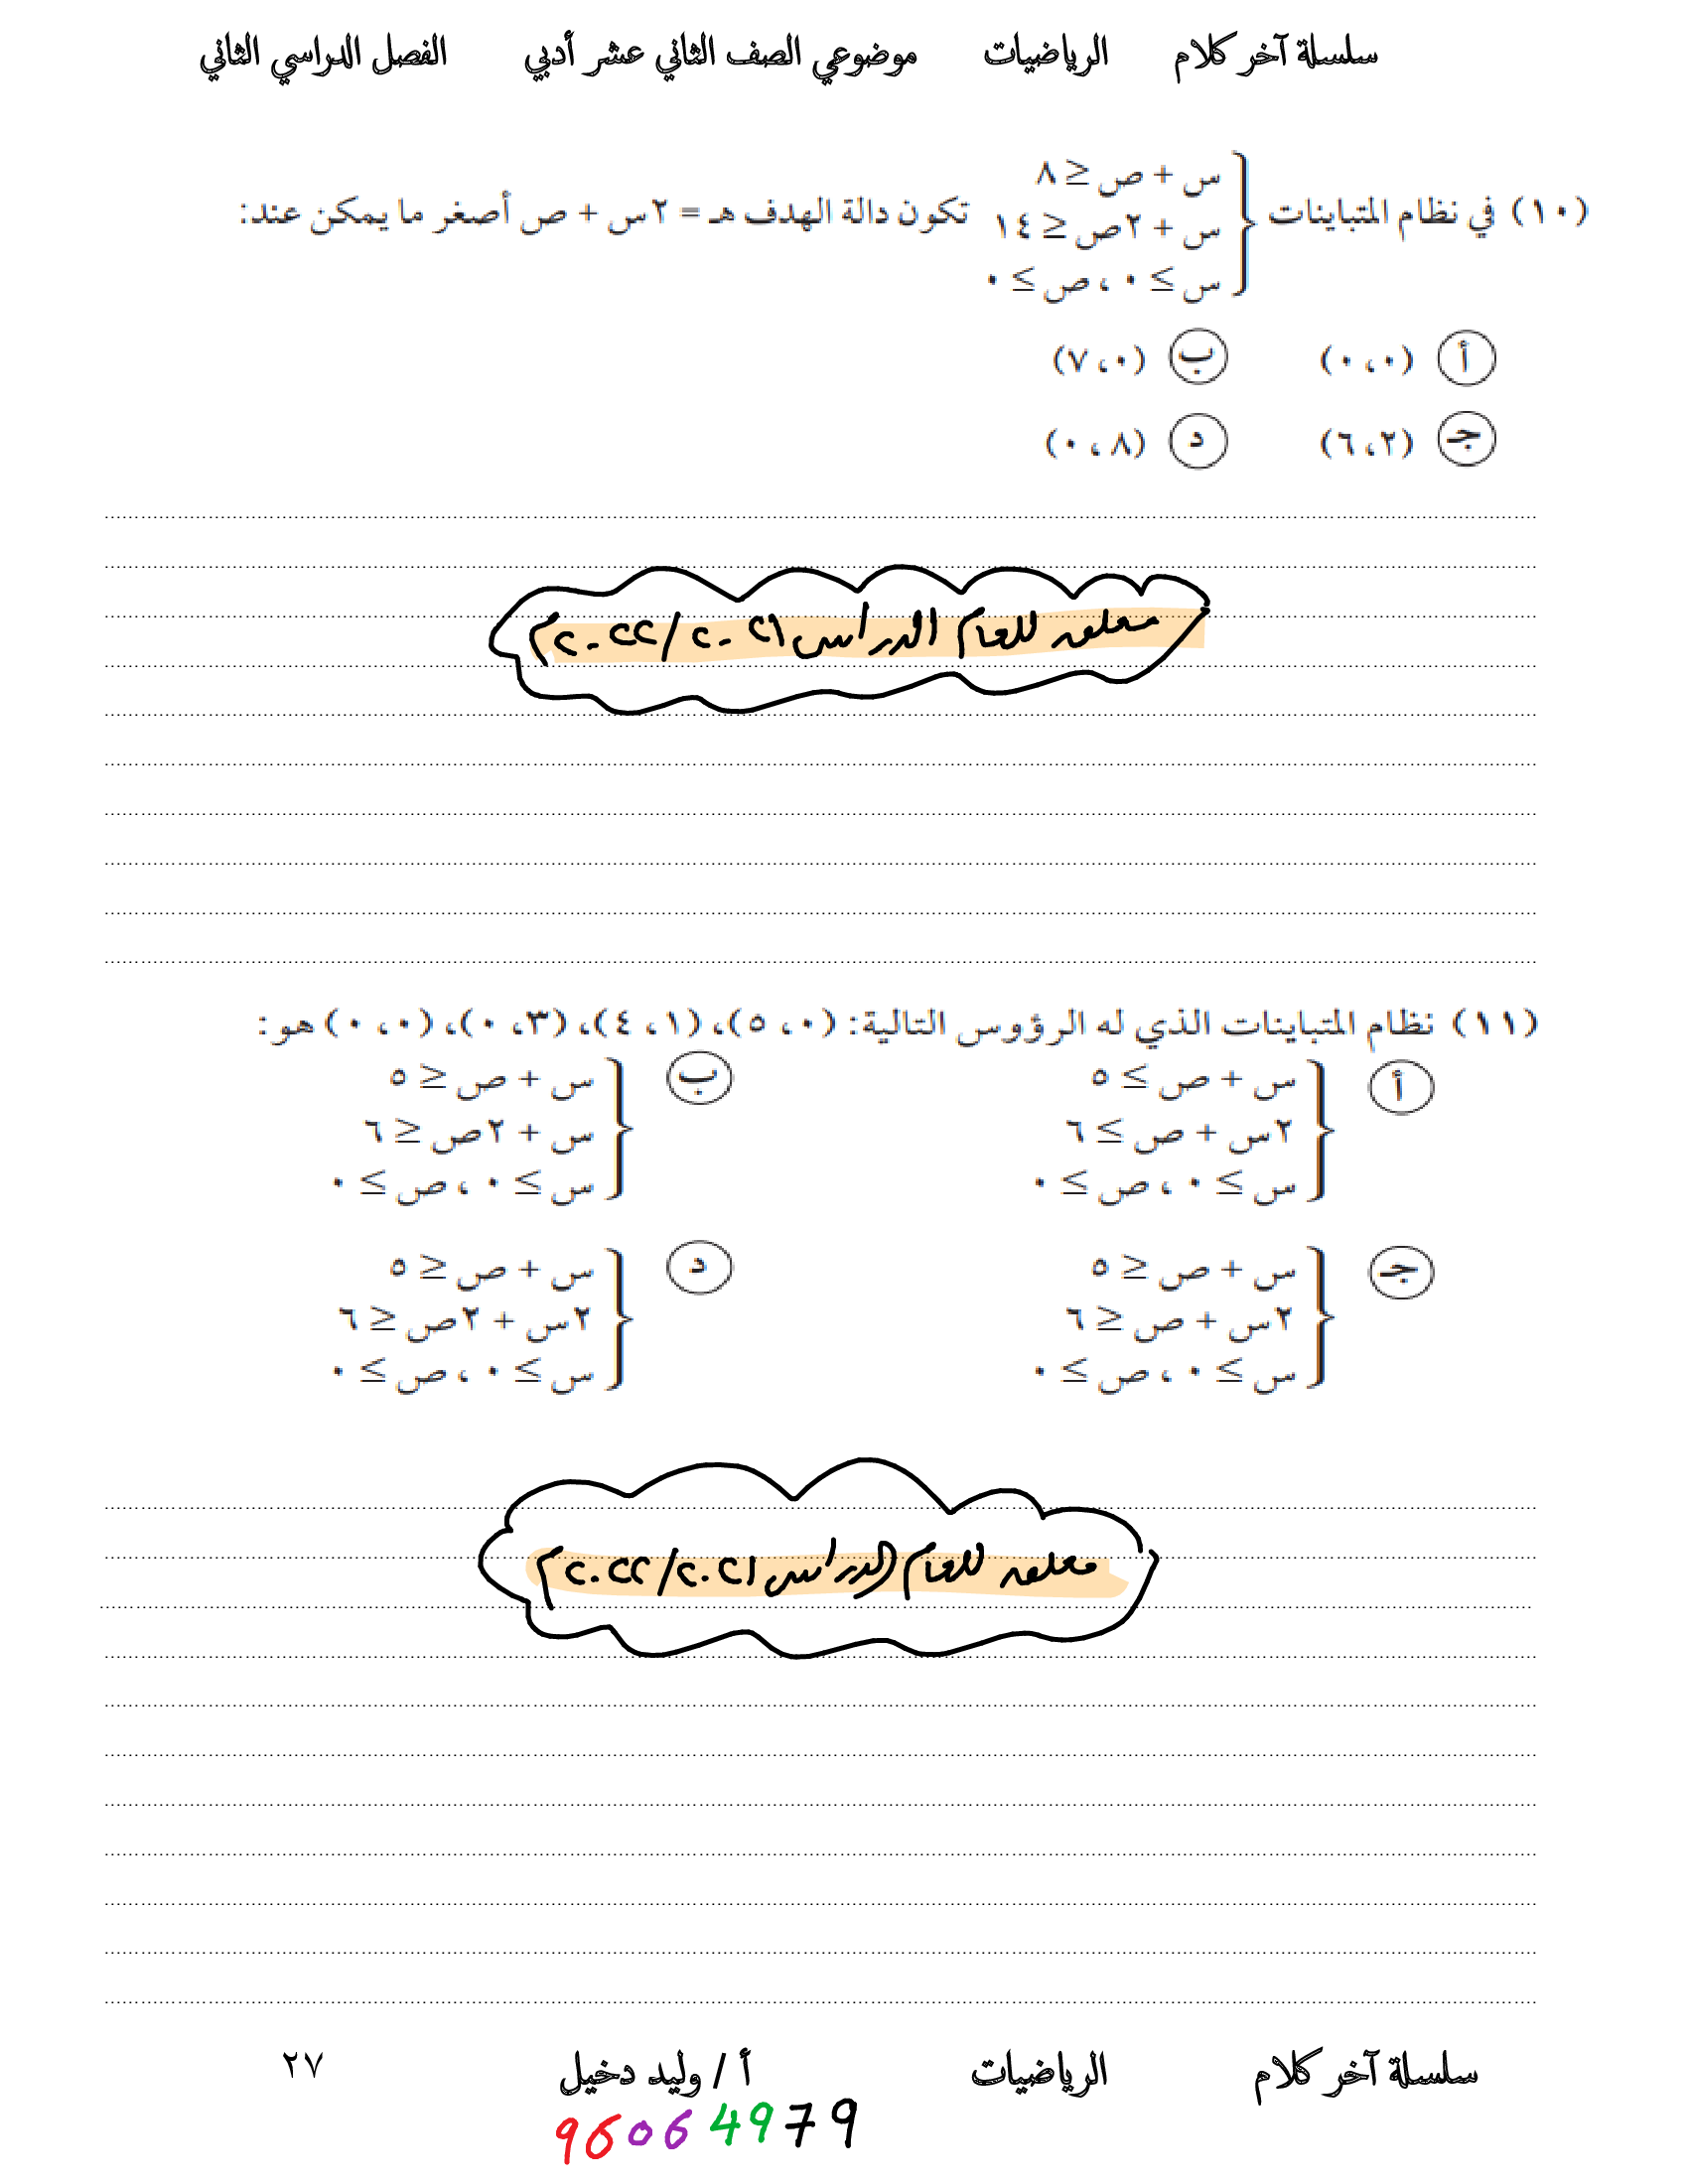 سلسلة آخر كلام الرياضيات موضوعي الصف الثاني عشر أدبي الفصل الدراسي الثاني
س + ص ≤ ٨
(١٠) في نظام المتباينات س + ٢ص ≤ ١٤ تكون دالة الهدف هـ = ٢س + ص أصغر ما يمكن عند:
س ≥ ٠ ، ص ≥ ٠
أ (٠ ، ٠) ب (٠ ، ٧)
جـ (٢ ، ٦) د (٨ ، ٠)
معلق للعام الدراسي ٢٠٢١/٢٠٢٢م
(١١) نظام المتباينات الذي له الرؤوس التالية: (٠ ، ٥)، (١ ، ٤)، (٣ ، ٠)، (٠ ، ٠) هو:
أ س + ص ≥ ٥ ب س + ص ≤ ٥
٢س + ص ≥ ٦ س + ٢ص ≤ ٦
س ≥ ٠ ، ص ≥ ٠ س ≥ ٠ ، ص ≥ ٠
جـ س + ص ≤ ٥ د س + ص ≤ ٥
٢س + ص ≤ ٦ ٢س + ٢ص ≤ ٦
س ≥ ٠ ، ص ≥ ٠ س ≥ ٠ ، ص ≥ ٠
معلق للعام الدراسي ٢٠٢١/٢٠٢٢م
سلسلة آخر كلام الرياضيات أ / وليد دخيل ٢٧
96064979